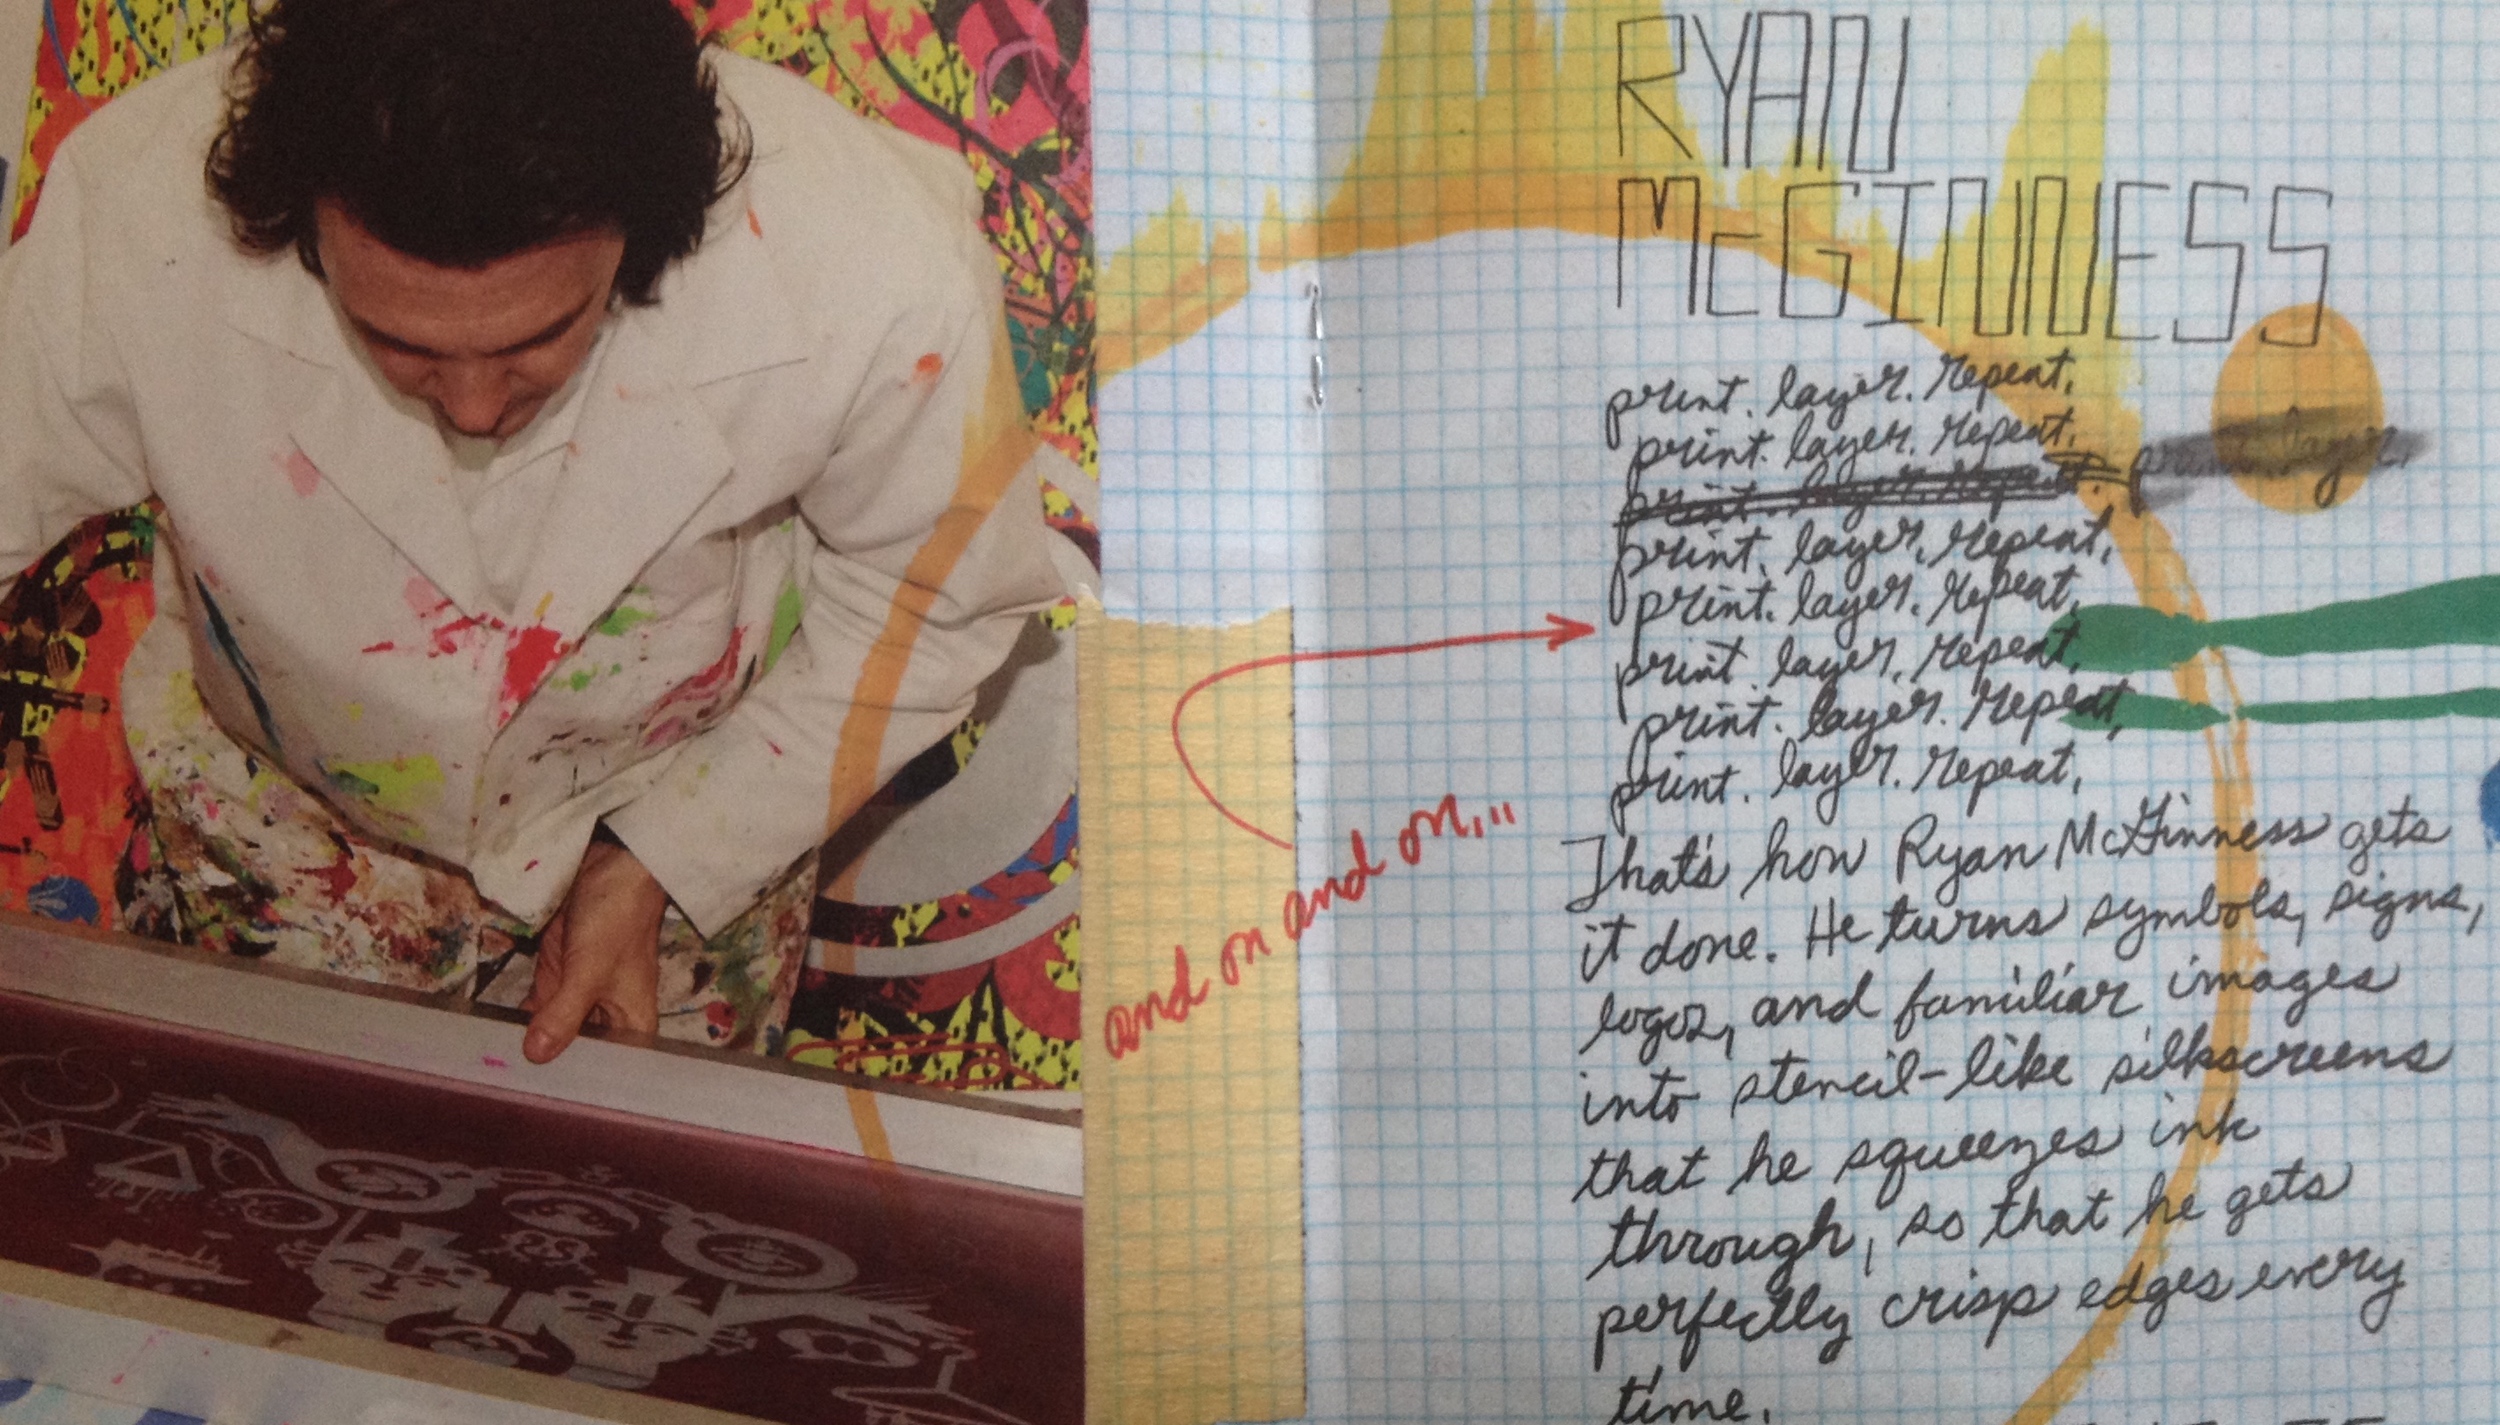 RYAN
McGINNESS
print. layer. repeat.
print. layer. repeat.
print. layer. repeat. print. layer.
print. layer. repeat.
print. layer. repeat.
print. layer. repeat.
print. layer. repeat.
print. layer. repeat.
and on and on and on...
That's how Ryan McGinness gets
it done. He turns symbols, signs,
logos, and familiar images
into stencil-like silkscreens
that he squeezes ink
through, so that he gets
perfectly crisp edges every
time.